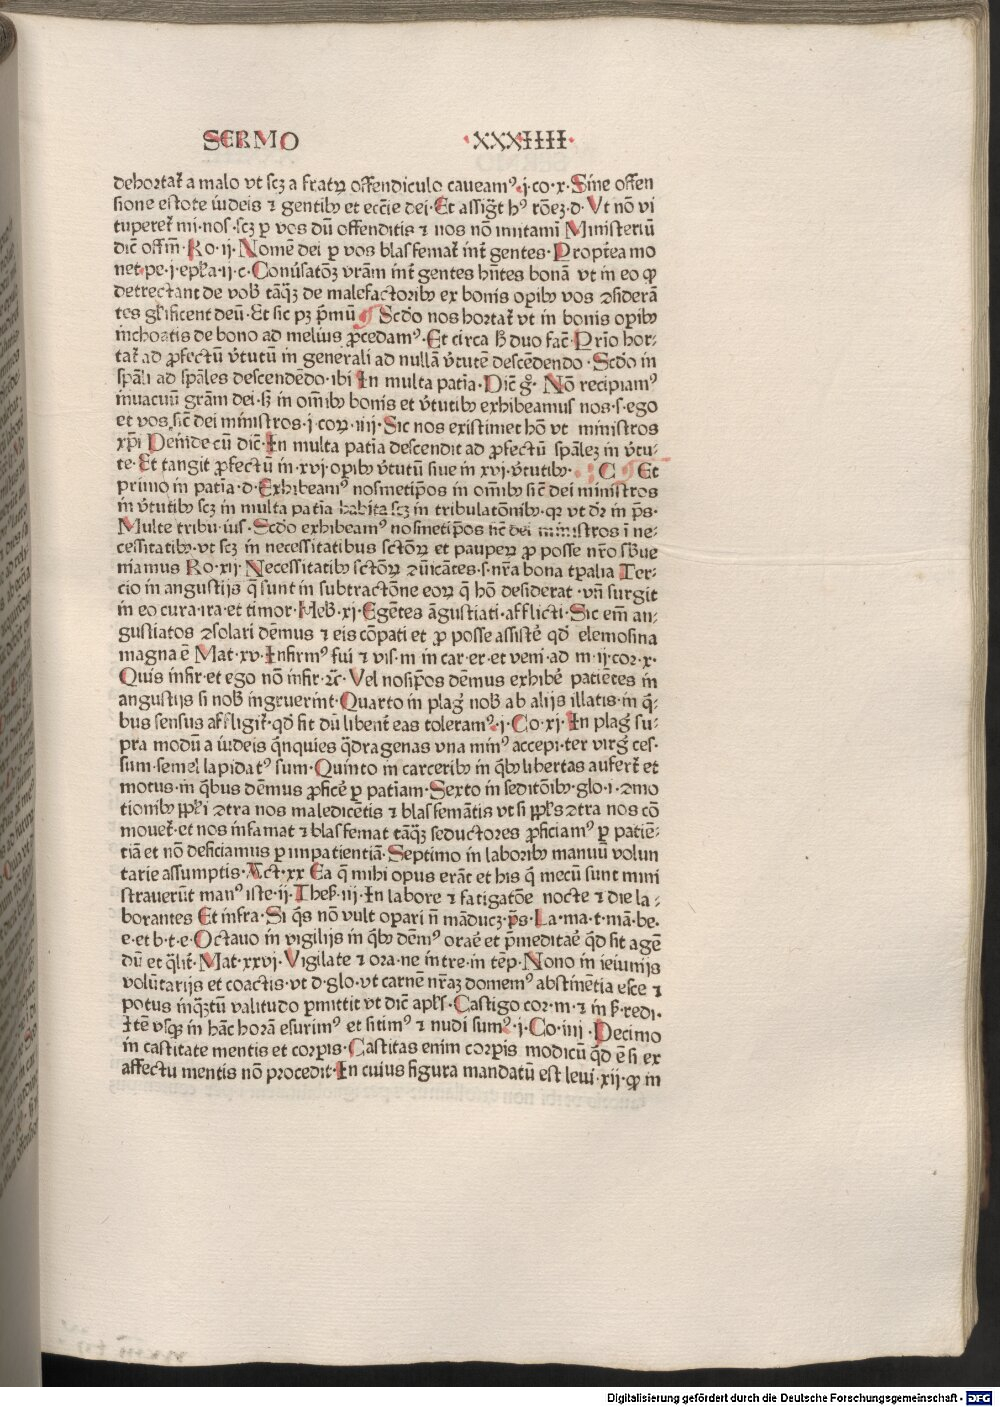 SERMO ·XXXIIII·
dehortat᷑ a malo vt scꝫ a fratꝝ offendiculo caueamꝰ.j.co.x. Sine offen
sione estote iudeis ⁊ gentibꝰ et eccīe dei. Et assigt hꝰ rōeꝫ.d. Vt nō vi
tuperet᷑ mi.nos.scꝫ ꝑ vos dū offenditis ⁊ nos nō imitamī Ministeriū
dic̄ offm̄. Ro.ij. Nomē dei ꝑ vos blasfemat᷑ int᷑ gentes. Propt̄ea mo
net.pe.j.epl̄a.ij.c. Conūsatōꝫ vrām int᷑ gentes hn̄tes bonā vt in eo ꝙ
detrectant de vob̄ tāq̄ꝫ de malefactoribꝰ ex bonis oꝑibꝰ vos ꝯsiderā
tes gl̄ificent deū. Et sic pꝫ p̄mū ¶ Scd̄o nos hortat᷑ vt in bonis oꝑibꝰ
inchoatis de bono ad melius ꝓcedamꝰ. Et circa h̄ duo fac̄. Prio hor-
tat᷑ ad ꝓfectū v̄tutū in generali ad nullā v̄tutē descēdendo. Scd̄o in
spāli ad spāles descendēdo.ibi In multa patiā. Dic̄ g̊. Nō recipiamꝰ
inuacuū grām dei.sꝫ in om̄ibꝰ bonis et v̄tutibꝰ exhibeamus nos.s.ego
et vos sic̄ dei ministros.j.coꝝ.iiij. Sic nos existimet hō vt ministros
xp̄i Deinde cū dic̄. In multa patiā descendit ad ꝓfectū spāleꝫ in v̄tu-
te. Et tangit ꝓfectū in.xvj.oꝑibꝰ v̄tutū siue in xvj.v̄tutibꝰ. C Et
primo in patiā.d. Exhibeamꝰ nosmetip̄os in om̄ibꝰ sic̄ dei ministros
in v̄tutibꝰ scꝫ in multa patiā habita scꝫ in tribulatōnibꝰ.qꝛ vt dr̄ in ps̄.
Multe tribu.ius. Scd̄o exhibeamꝰ nosmetip̄os sic̄ dei ministros ī ne-
cessitatibꝰ.vt scꝫ in necessitatibus sctōꝝ et pauꝑeꝝ ꝓ posse nr̄o sb̄ue
niamus Ro.xij. Necessitatibꝰ sctōꝝ ꝯūicātes.s.nr̄a bona tꝑalia Ter-
cio in angustijs q̄ sunt in subtractōne eoꝝ q̄ hō desiderat.vn̄ surgit
in eo cura.ira.et timor. Heb̄.xj. Egētes āgustiati.afflicti. Sic em̄ an-
gustiatos ꝯsolari dēmus ⁊ eis cōpati et ꝓ posse assistē qd̄ elemosina
magna ē Mat.xv. Infirmꝰ fui ⁊ vis.m in car.er.et veni.ad m.ij.cor.x.
Quis infir.et ego nō infir.⁊c̄. Vel nosip̄os dēmus exhibē patiētes in
angustijs si nob̄ ingruerint. Quarto in plaḡ nob̄ ab alijs illatis.in q̄-
bus sensus affligit᷑.qd̄ sit dū libent᷑ eas toleramꝰ.j.Co.xj. In plaḡ su-
pra modū a iudeis q̄nquies q̄dragenas vna minꝰ accepi.ter virḡ ces-
sum.semel lapidatꝰ sum. Quinto in carceribꝰ in q̄bꝰ libertas aufert᷑ et
motus.in q̄bus dēmus ꝓficē ꝑ patiam. Sexto in seditōibꝰ.glo.i.ꝯmo
tionibꝰ ppl̄i ꝯtra nos maledicētis ⁊ blasfemātis vt si ppl̄s ꝯtra nos cō
mouet᷑.et nos infamat ⁊ blasfemat tāq̄ꝫ seductores ꝓficiamꝰ ꝑ patiē-
tiā et nō deficiamus ꝑ impatientiā. Septimo in laboribꝰ manuū volun
tarie assumptis. Act.xx Ea q̄ mihi opus erāt et his q̄ mecū sunt mini
strauerūt manꝰ iste.ij. Thes̄.iij. In labore ⁊ fatigatōe nocte ⁊ die la-
borantes Et infra. Si q̄s nō vult oꝑari n̄ māducꝫ.ps̄. La.ma.t.mā.be.
e.et b.t.e. Octauo in vigilijs in q̄bꝰ dēmꝰ orāe et p̄meditāe q̄d sit agē
dū et q̄lit᷑. Mat.xxvj. Vigilate ⁊ ora.ne intre.in tēp. Nono in ieiunijs
volūtarijs et coactis.vt d.glo.vt carnē nr̄aꝫ domemꝰ abstinētia esce ⁊
potus inq̄ꝫtū valitudo ꝑmittit vt dic̄ apl̄s. Castigo cor.m.⁊ in s̄.redi.
Itē vsqꝫ in hāc horā esurimꝰ et sitimꝰ ⁊ nudi sumꝰ.j.Co.iiij. Decimo
in castitate mentis et corꝑis. Castitas enim corꝑis modicū q̄d ē si ex
affectu mentis nō procedit. In cuius figura mandatū est leui.xij.ꝙ in
Digitalisierung gefördert durch die Deutsche Forschungsgemeinschaft - DFG